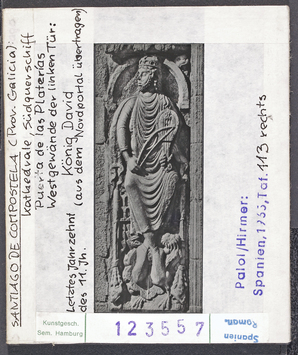 SANTIAGO DE COMPOSTELA (Prov. Galicia):
Kathedrale Südquerschiff
Puerta de las Platerías
Westgewände der linken Tür:
König David
(aus dem Nordportal übertragen)
Letztes Jahrzehnt
des 11. Jh.
Palol/Hirmer:
Spanien, 1965, Taf. 113 rechts
Kunstgesch.
Sem. Hamburg
123557
Spanien
Roman.